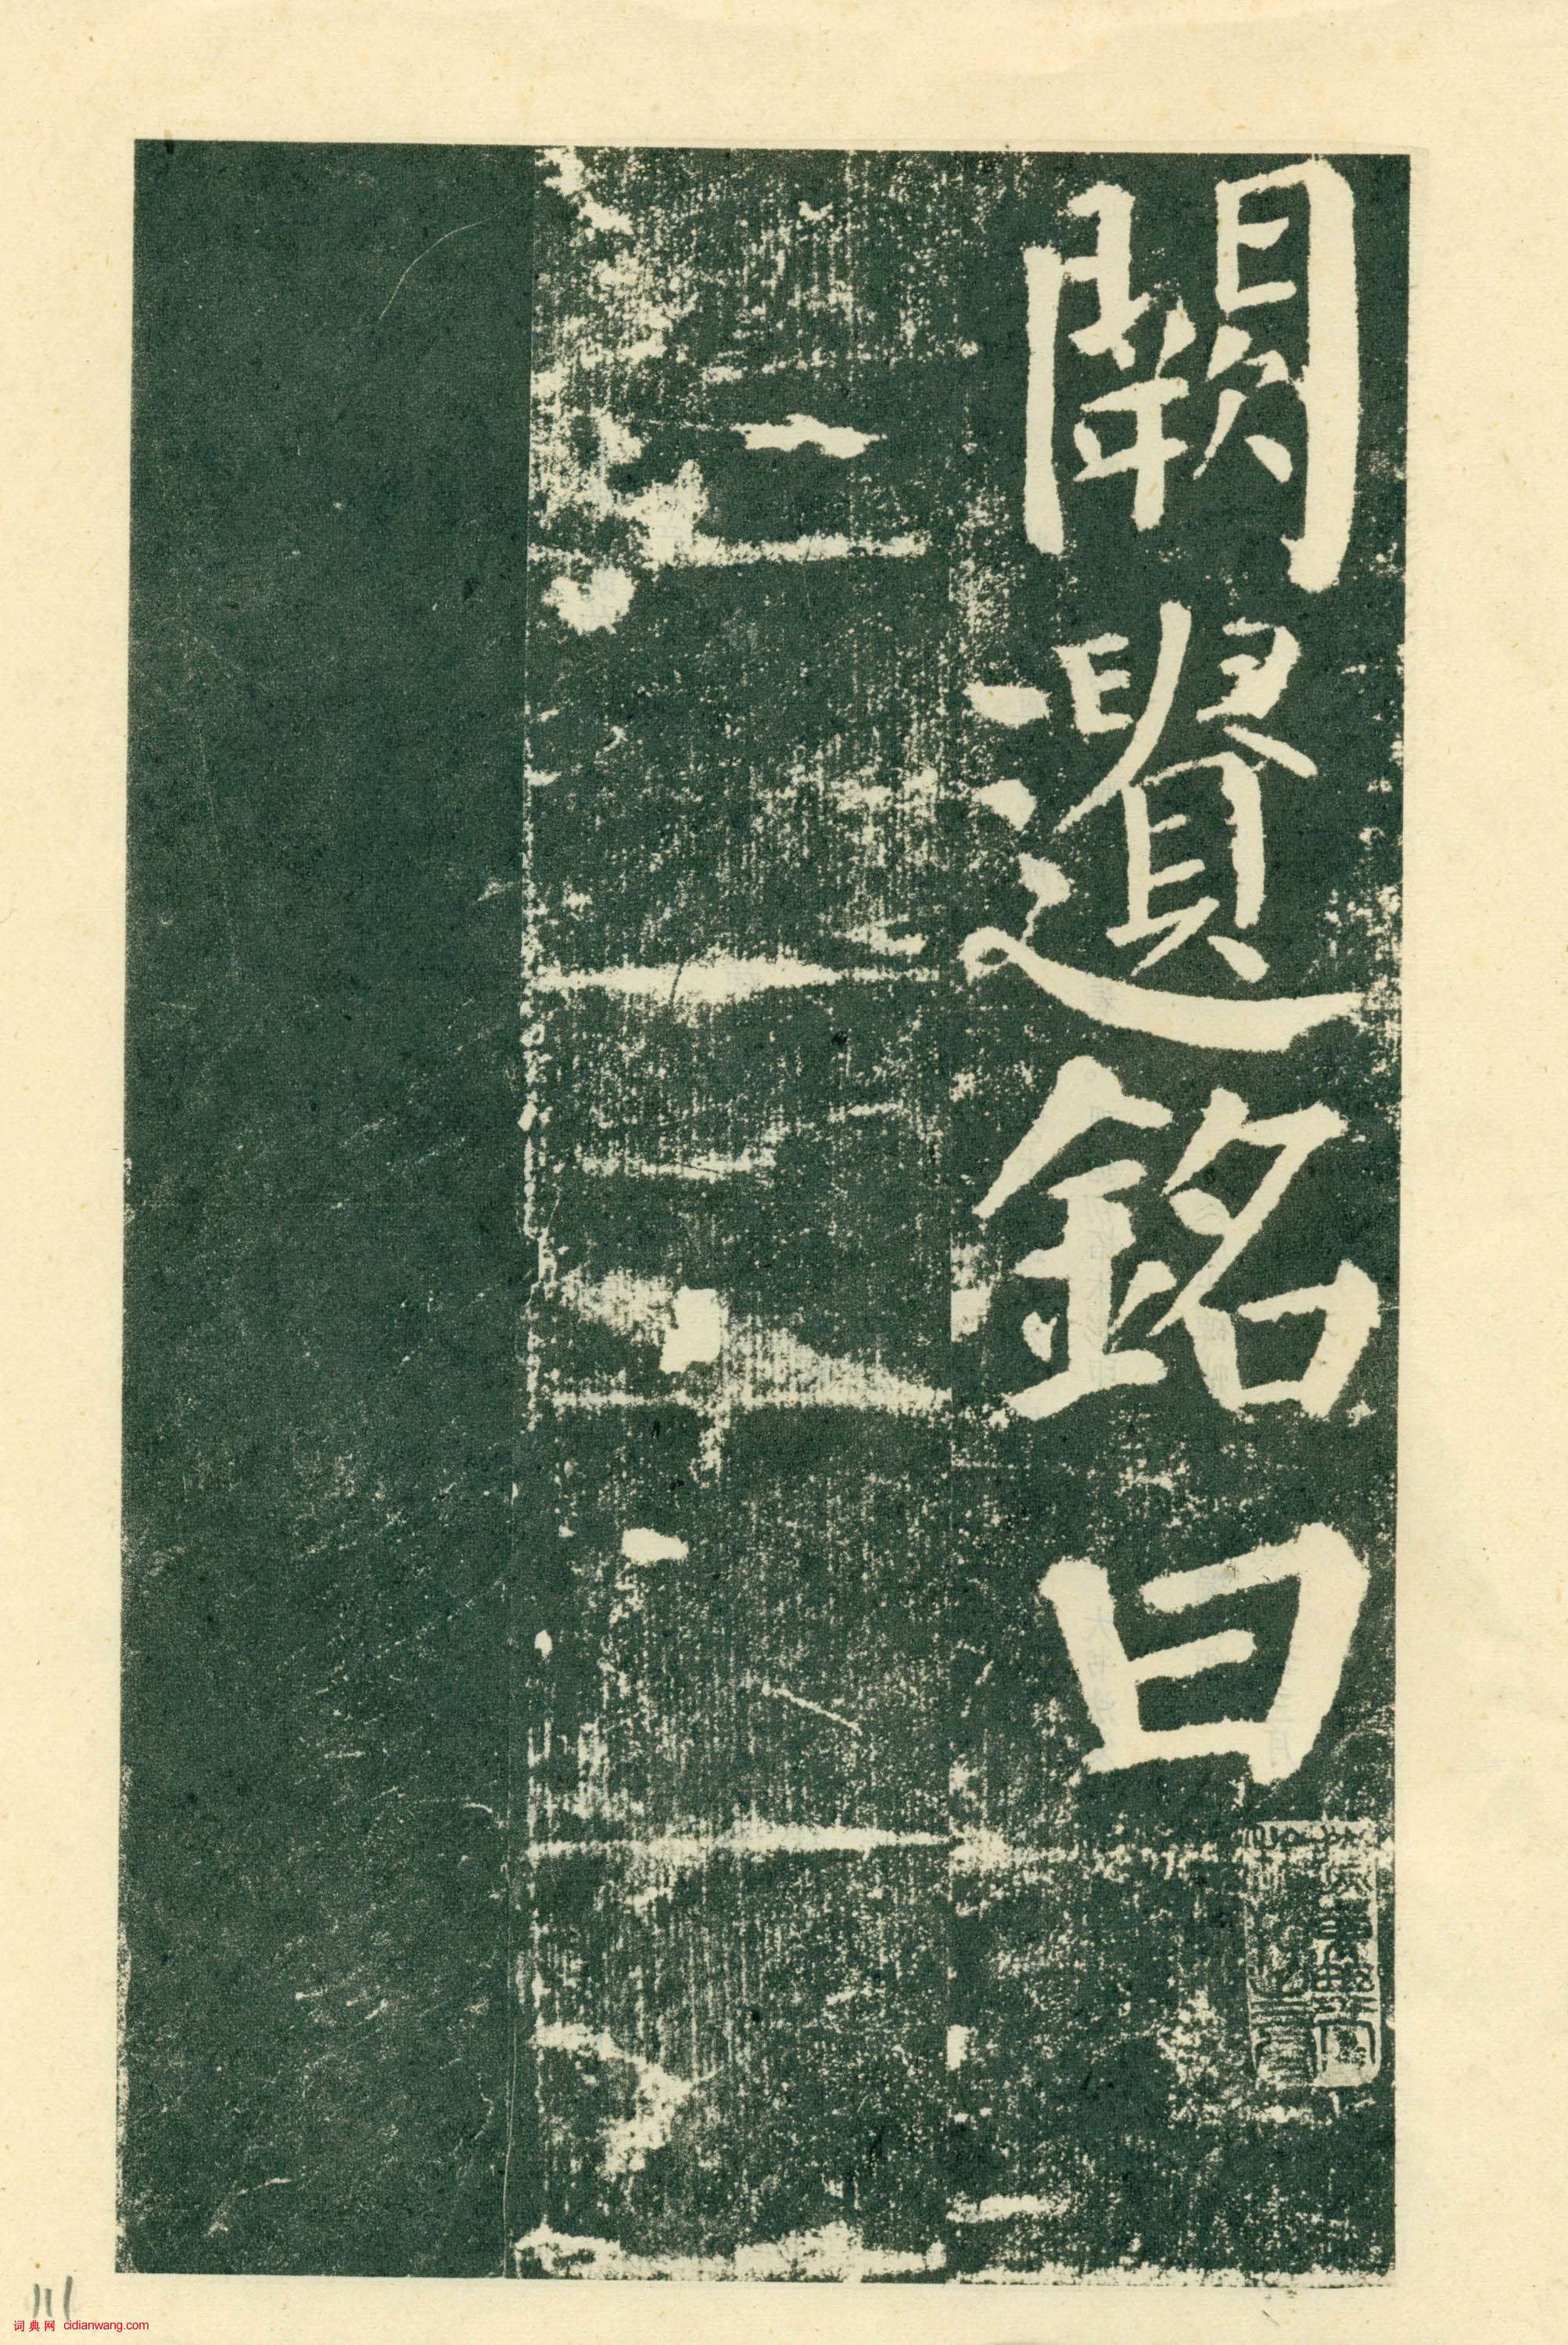 闕遺銘曰
词典网 cidianwang.com